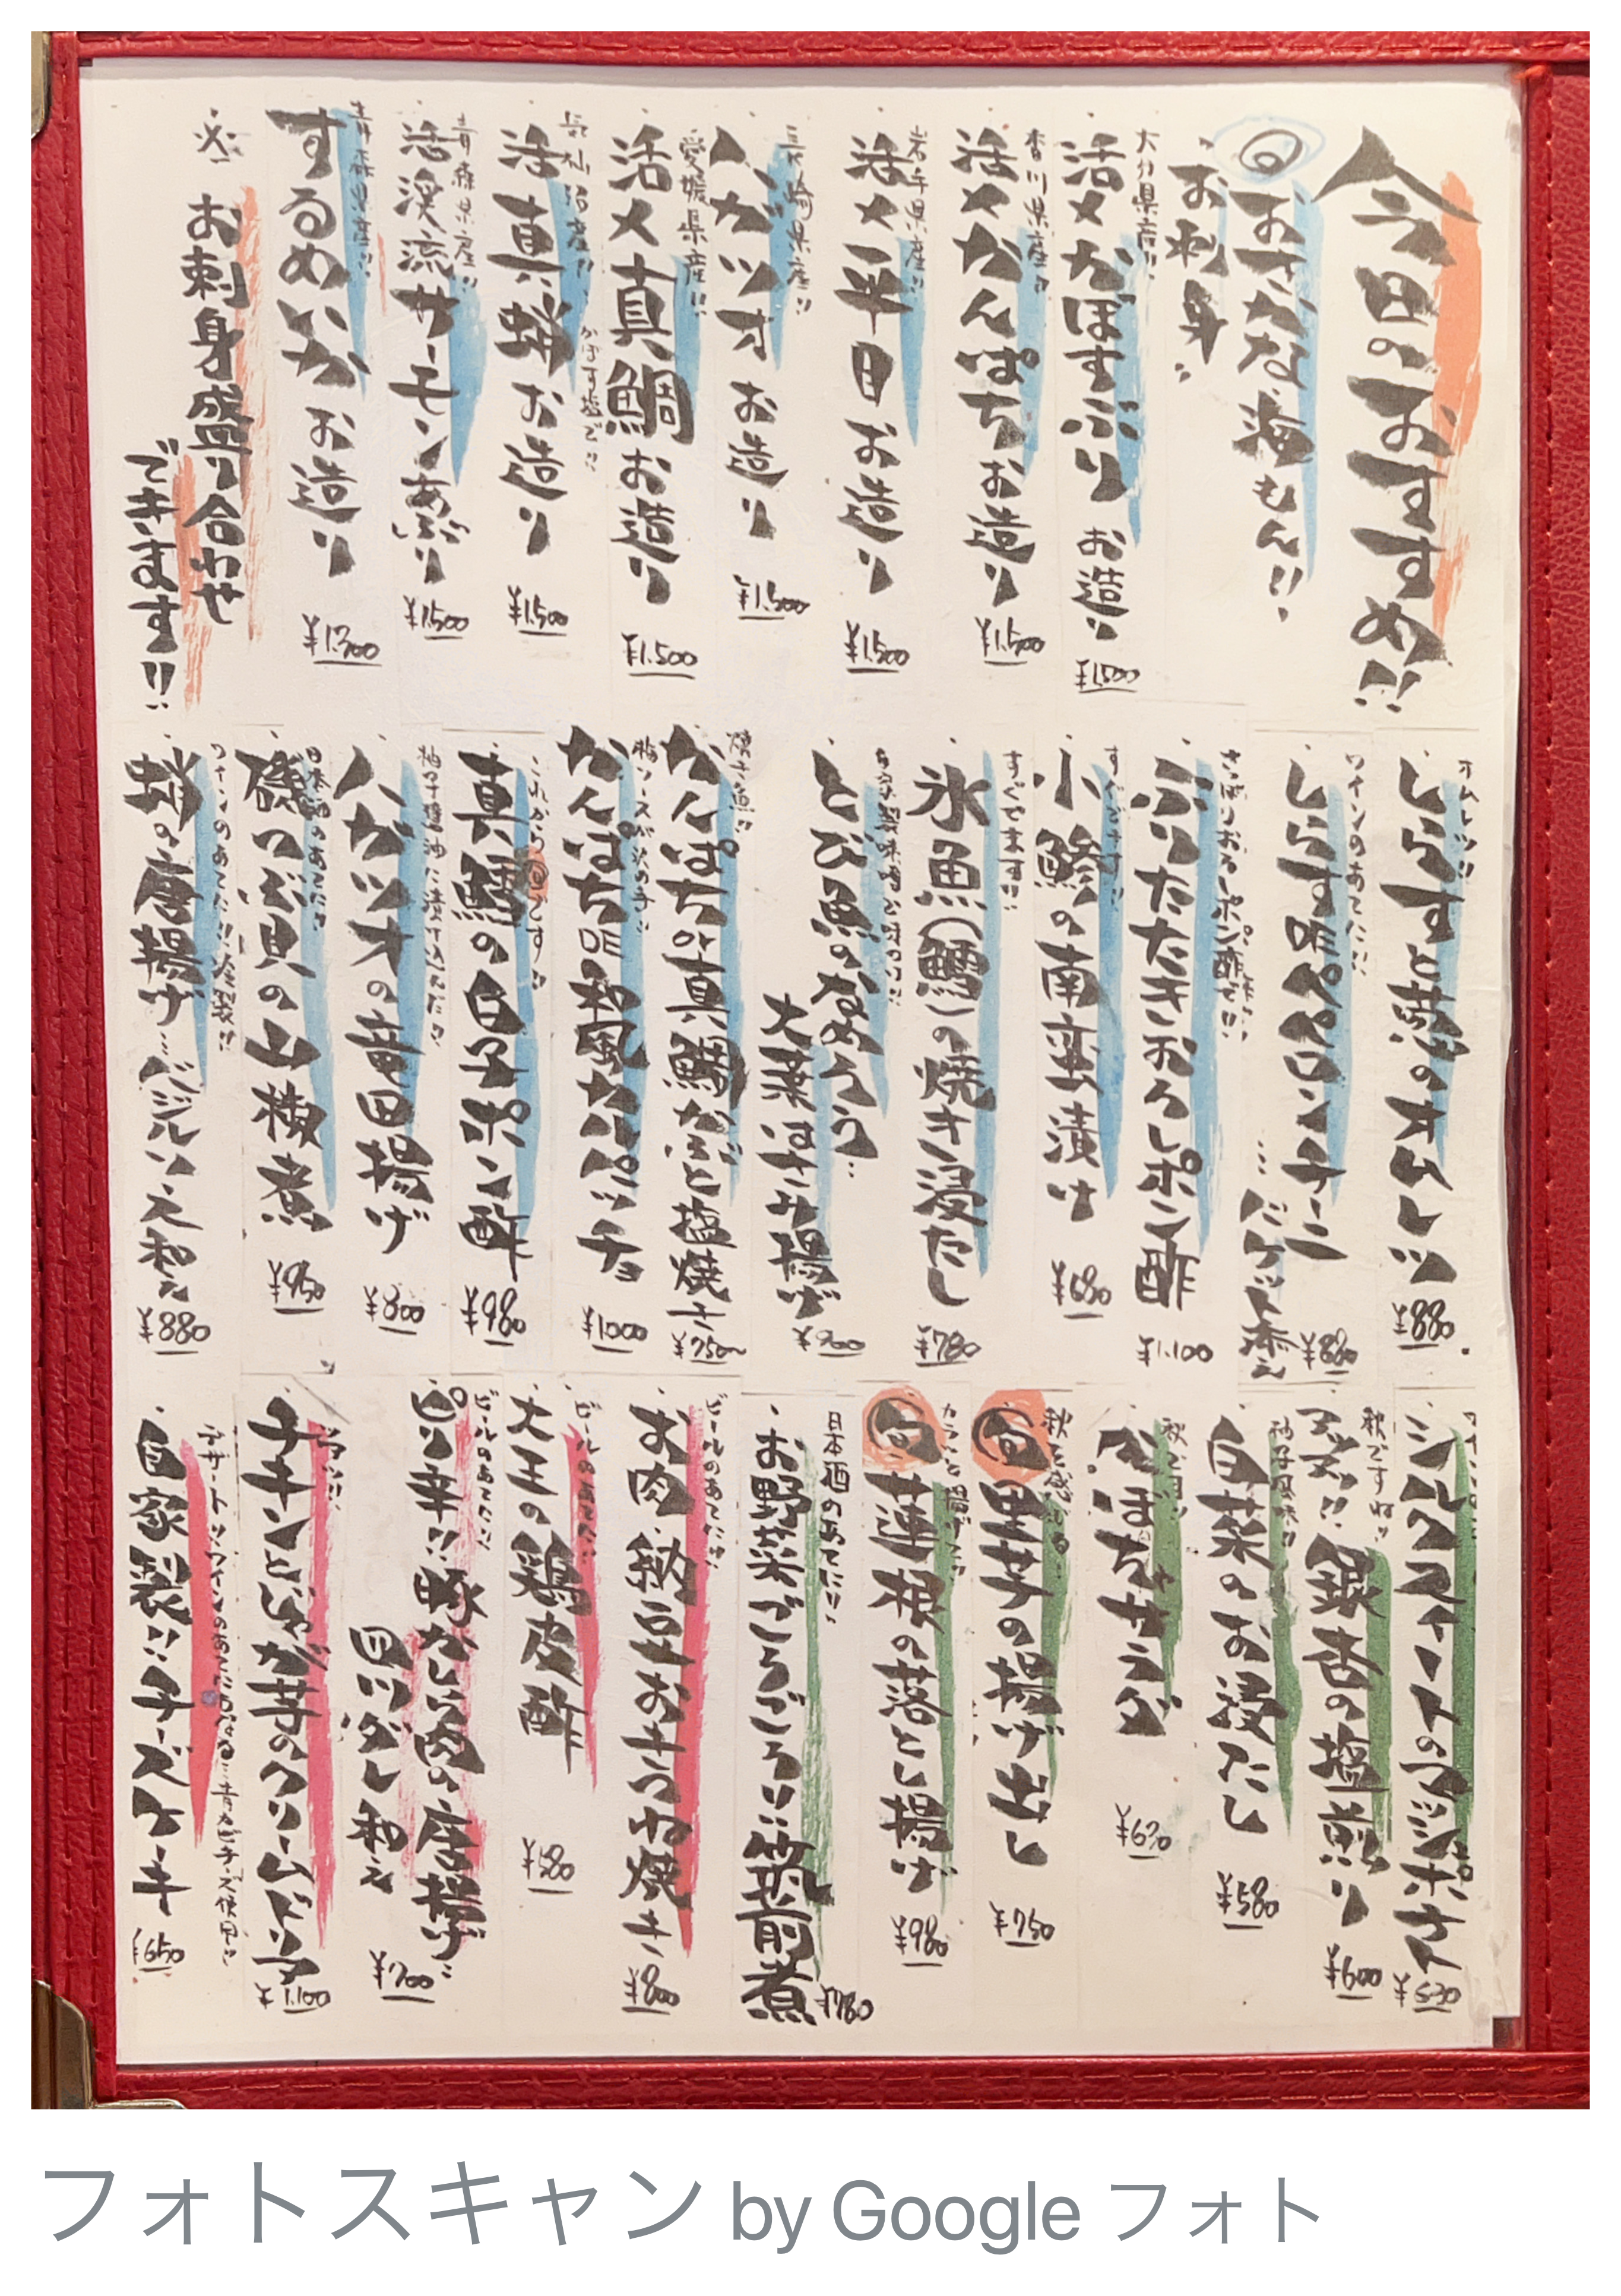 今日のおすすめ!!
旬 おさかな海もん!!
お刺身
大分県産!!
活〆かぼすぶり お造り ¥1,500
香川県産!!
活〆かんぱちお造り ¥1,500
岩手県産!!
活〆平目お造り ¥1,500
長崎県産!!
ハガツオ お造り ¥1,500
愛媛県産!!
活〆真鯛お造り ¥1,500
かぼす塩で!!
活真蛸お造り ¥1,500
青森県産!!
活渓流サーモンあぶり ¥1,500
青森県産!!
するめいか お造り ¥1,300
※ お刺身盛り合わせ
できます!!
オムレツ!!
しらすと葱のオムレツ ¥880
ワインのあてに!!
しらす味ペペロンチーニ
…バケット添え ¥880
ぶりたたきおろしポン酢 ¥1,100
すぐでます!!
小鯵の南蛮漬け ¥680
すぐでます!!
氷魚(鱈)の焼き浸たし ¥780
とび魚のなめろう…
大葉はさみ揚げ ¥900
焼き魚!!
かんぱちor真鯛かぶと塩焼き ¥750〜
かんぱちDE和風カルパッチョ ¥1000
これから旬です!!
真鱈の白子ポン酢 ¥980
柚子醤油に漬け込んだ!!
ハガツオの竜田揚げ ¥800
日本酒のあてに!!
磯つぶ貝の山椒煮 ¥950
ワインのあてに!!
蛸の唐揚げ…バジルソース和え ¥880
シルクスイートのマッシュポテト
秋ですね!!
アツアツ!! 銀杏の塩煎り ¥600
柚子風味!!
白菜のお浸たし ¥580
かぼちゃサラダ
秋を感じる…
旬 里芋の揚げ出し ¥750
カラッと揚げた!!
旬 蓮根の落とし揚げ ¥980
日本酒のあてに!!
お野菜ごろごろ!!筑前煮 ¥780
ビールのあてに!!
お肉、納豆おきつね焼き ¥800
ビールのあてに!!
大王の鶏皮酢 ¥580
ビールのあてに!!
ピリ辛!! 豚かしら肉の唐揚げ…
四川ダレ和え ¥700
チキンとじゃが芋のクリームドリア ¥1,100
デザート!! ワインのあてにもなる…青カビチーズ使用!!
自家製!! チーズケーキ ¥650
フォトスキャン by Google フォト